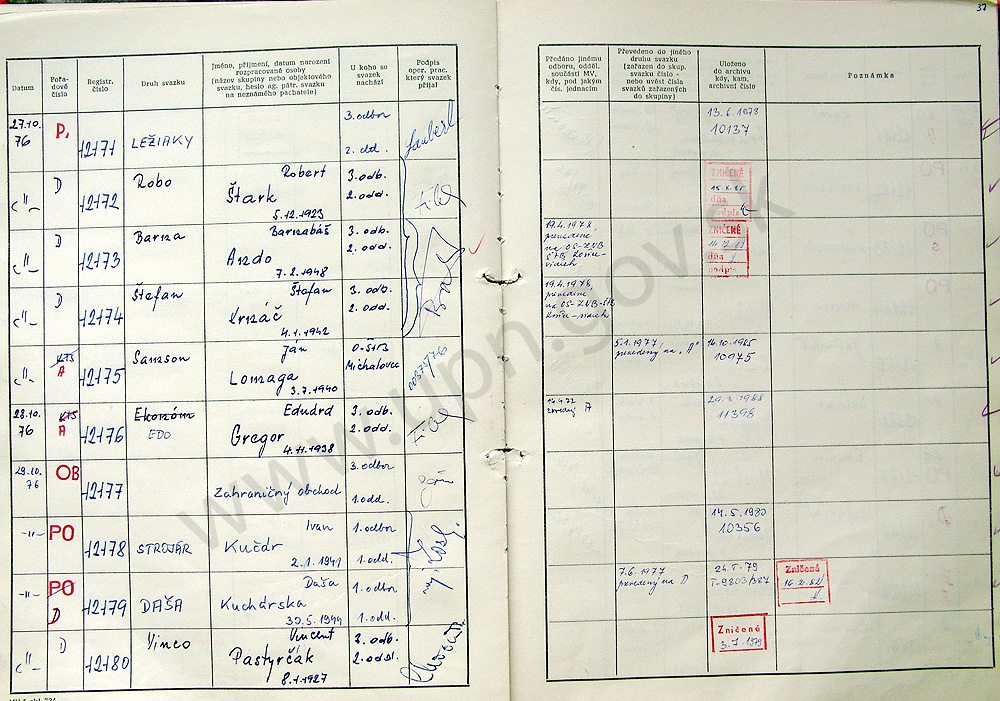 37
Datum
Pořa-
dové
číslo
Registr.
číslo
Druh svazku
Jméno, příjmení, datum narození
rozpracované osoby
(název skupiny nebo objektového
svazku, heslo ag. pátr. svazku
na neznámého pachatele)
U koho se
svazek
nachází
Podpis
oper. prac.
který svazek
přijal
Předáno jinému
odboru, odděl.
součásti MV,
kdy, pod jakým
čís. jednacím
Převedeno do jiného
druhu svazku
(zařazen do skup.
svazku číslo -
nebo uvést čísla
svazků zařazených
do skupiny)
Uloženo
do archivu
kdy, kam,
archivní číslo
Poznámka
27.10.
76
P,
12171
LEŽIAKY
3. odbor
2. odd.
13. 6. 1978
10137
-"-
D
12172
Robo
Robert
Štark
5.12.1923
3. odb.
2. odd.
ZNIČENÉ
dňa
podpis
-"-
D
12173
Barna
Barnabáš
Ando
7.2.1948
3. odb.
2. odd.
19.4.1978
prevedené
na OS-ZNB
ZNIČENÉ
dňa
podpis
-"-
D
12174
Štefan
Štefan
Krnáč
4.1.1942
3. odb.
2. odd.
19.4.1978
prevedené
-"-
KTS
A
12175
Samson
Ján
Lomaga
3.7.1940
O-ŠTB
Michalovce
5.1.1977
prevedený na "A"
14.10.1985
10975
28.10.
76
KTS
A
12176
Ekonóm
EDO
Eduard
Gregor
4.11.1938
3. odb.
2. odd.
A
29.3.1988
11398
29.10.
76
OB
12177
Zahraničný obchod
3. odbor
1. odd.
-"-
PO
12178
STROJÁR
Ivan
Kučár
2.1.1941
1. odbor
1. odd.
14.5.1980
10356
-"-
PO
D
12179
DAŠA
Daša
Kuchárska
30.5.1944
1. odbor
1. odd.
7.6.1977
prevedený na D
24.5.79
T-9803/367
Zničené
-"-
D
12180
Vinco
Vincent
Pastyrčák
8.1.1927
2. odb.
2. odd.
Zničené
3.7.1979
www.upn.gov.sk